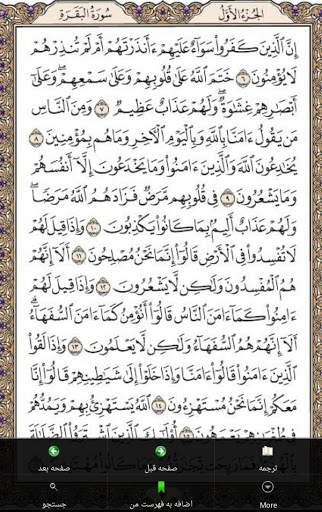 الجزء الأول سورة البقرة
إِنَّ الَّذِينَ كَفَرُوا سَوَاءٌ عَلَيْهِمْ ءَأَنذَرْتَهُمْ أَمْ لَمْ تُنذِرْهُمْ
لَا يُؤْمِنُونَ ٦ خَتَمَ اللَّهُ عَلَىٰ قُلُوبِهِمْ وَعَلَىٰ سَمْعِهِمْ ۖ وَعَلَىٰ
أَبْصَارِهِمْ غِشَاوَةٌ ۖ وَلَهُمْ عَذَابٌ عَظِيمٌ ٧ وَمِنَ النَّاسِ
مَن يَقُولُ ءَامَنَّا بِاللَّهِ وَبِالْيَوْمِ الْآخِرِ وَمَا هُم بِمُؤْمِنِينَ ٨
يُخَادِعُونَ اللَّهَ وَالَّذِينَ ءَامَنُوا وَمَا يَخْدَعُونَ إِلَّا أَنفُسَهُمْ
وَمَا يَشْعُرُونَ ٩ فِي قُلُوبِهِم مَّرَضٌ فَزَادَهُمُ اللَّهُ مَرَضًا ۖ
وَلَهُمْ عَذَابٌ أَلِيمٌ بِمَا كَانُوا يَكْذِبُونَ ١٠ وَإِذَا قِيلَ لَهُمْ
لَا تُفْسِدُوا فِي الْأَرْضِ قَالُوا إِنَّمَا نَحْنُ مُصْلِحُونَ ١١ أَلَا إِنَّهُمْ
هُمُ الْمُفْسِدُونَ وَلَٰكِن لَّا يَشْعُرُونَ ١٢ وَإِذَا قِيلَ لَهُمْ
ءَامِنُوا كَمَا ءَامَنَ النَّاسُ قَالُوا أَنُؤْمِنُ كَمَا ءَامَنَ السُّفَهَاءُ ۗ
أَلَا إِنَّهُمْ هُمُ السُّفَهَاءُ وَلَٰكِن لَّا يَعْلَمُونَ ١٣ وَإِذَا لَقُوا
الَّذِينَ ءَامَنُوا قَالُوا ءَامَنَّا وَإِذَا خَلَوْا إِلَىٰ شَيَاطِينِهِمْ قَالُوا إِنَّا
مَعَكُمْ إِنَّمَا نَحْنُ مُسْتَهْزِئُونَ ١٤ اللَّهُ يَسْتَهْزِئُ بِهِمْ وَيَمُدُّهُمْ
فِي طُغْيَانِهِمْ يَعْمَهُونَ ١٥ أُولَٰئِكَ الَّذِينَ اشْتَرَوُا الضَّلَالَةَ
بِالْهُدَىٰ فَمَا رَبِحَت تِّجَارَتُهُمْ وَمَا كَانُوا مُهْتَدِينَ
ترجمه صفحه قبل صفحه بعد
More اضافه به فهرست من جستجو